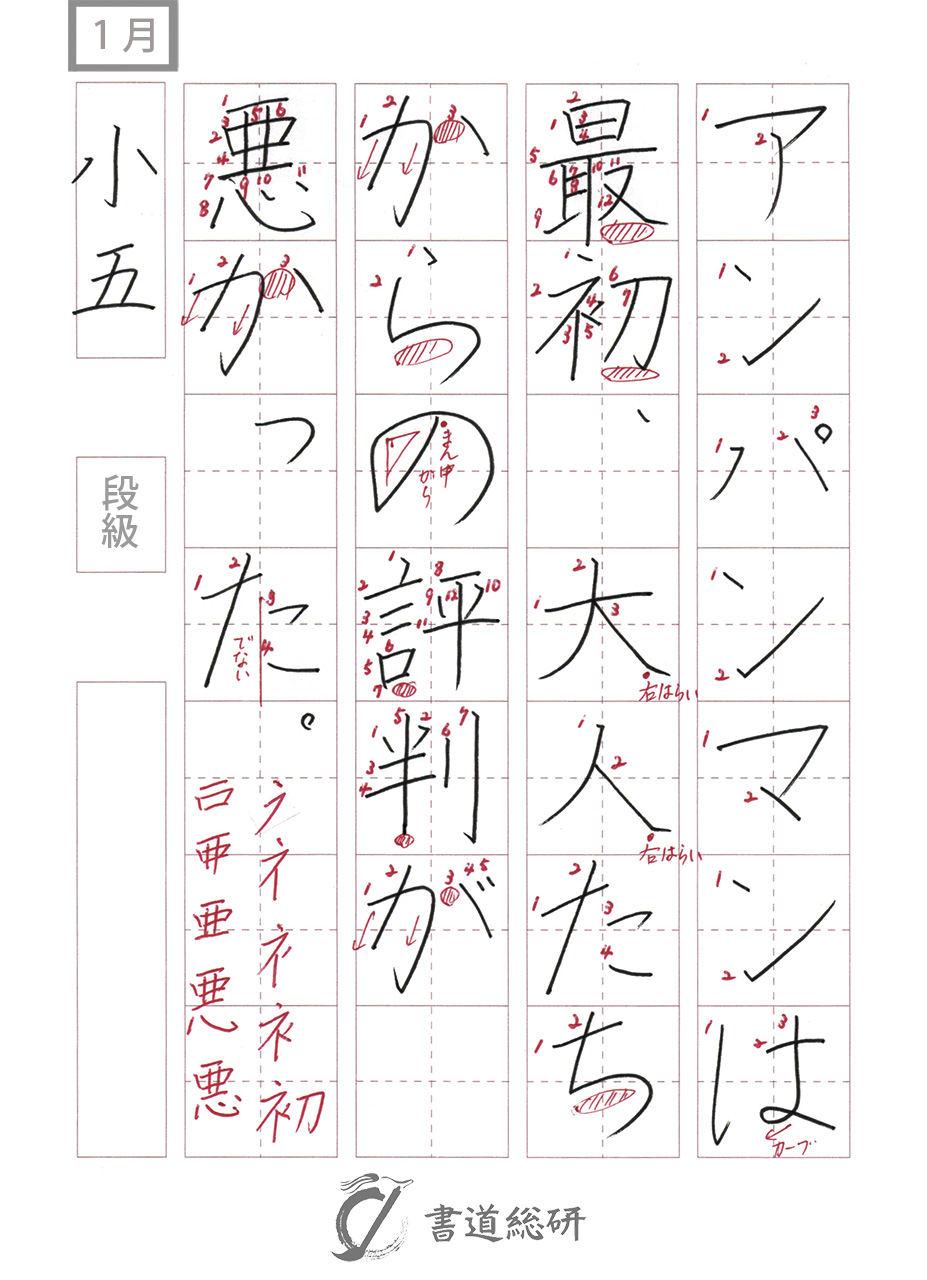 1月
アンパンマンは
最初、大人たち
からの評判が
悪かった。
小五
段級
右はらい
右はらい
カーブ
まん中から
でない
書道総研